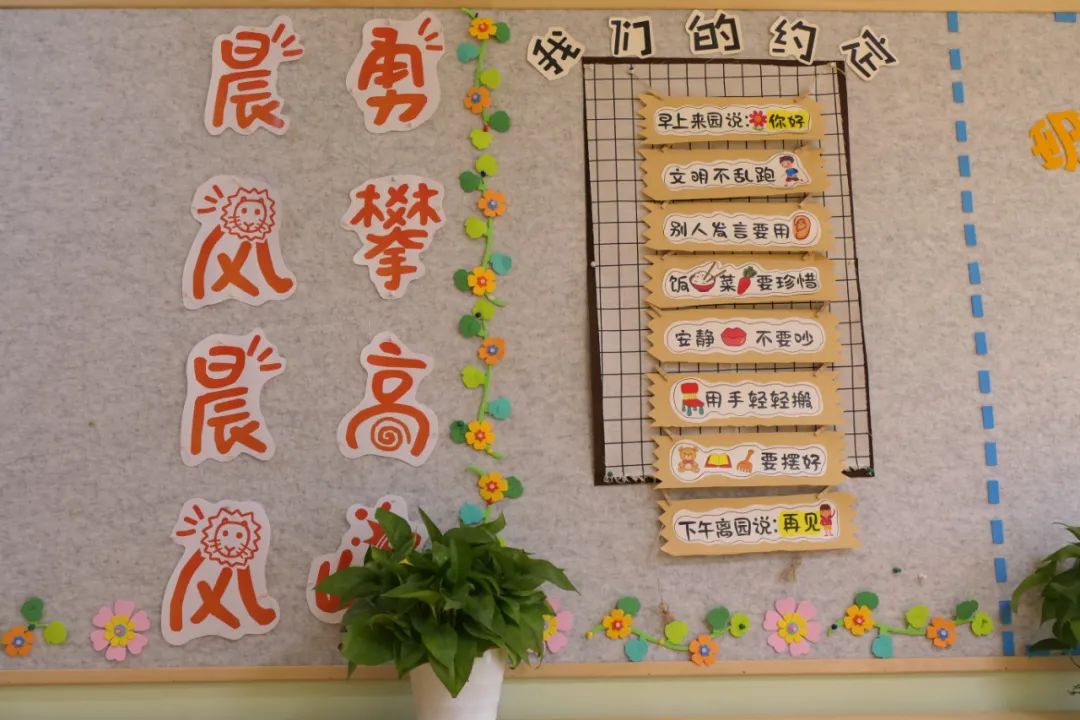 晨风晨风
勇攀高
我们的约定
早上来园说:你好
文明不乱跑
别人发言要用
饭菜要珍惜
安静不要吵
用手轻轻搬
要摆好
下午离园说:再见